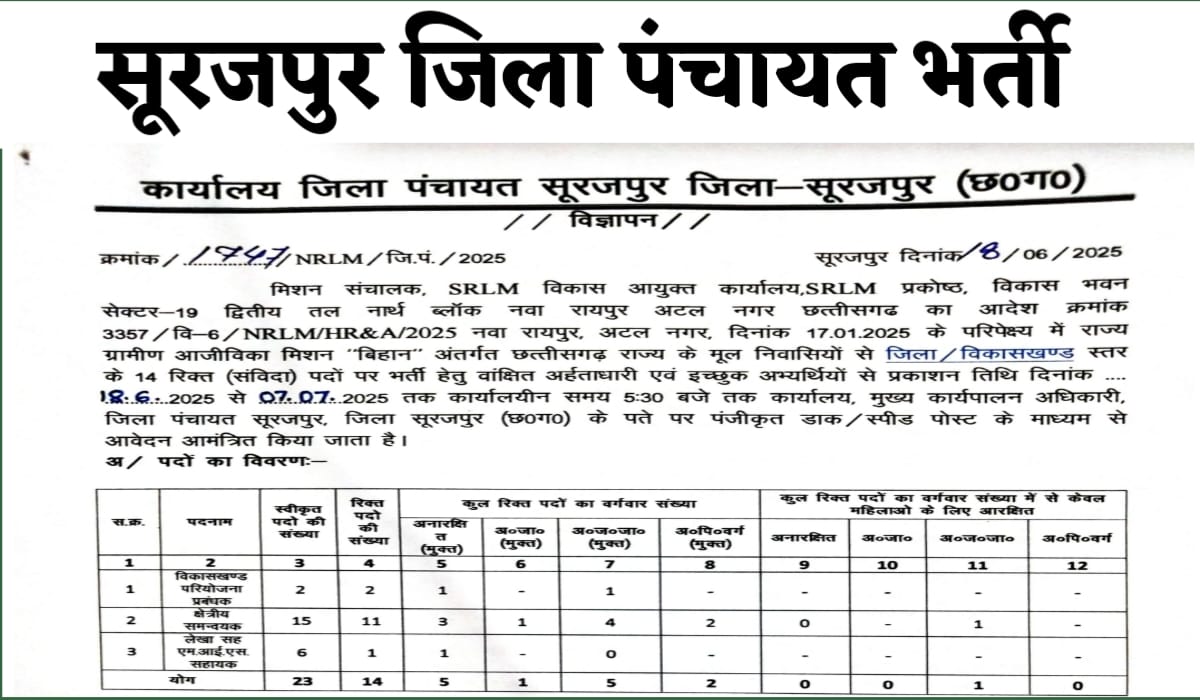 सूरजपुर जिला पंचायत भर्ती
कार्यालय जिला पंचायत सूरजपुर जिला–सूरजपुर (छ0ग0)
// विज्ञापन//
क्रमांक/.1747/NRLM/जि.पं./2025 सूरजपुर दिनांक 18/06/2025
मिशन संचालक, SRLM विकास आयुक्त कार्यालय,SRLM प्रकोष्ठ, विकास भवन
सेक्टर–19 द्वितीय तल नार्थ ब्लॉक नवा रायपुर अटल नगर छत्तीसगढ का आदेश क्रमांक
3357/वि–6/NRLM/HR&A/2025 नवा रायपुर, अटल नगर, दिनांक 17.01.2025 के परिपेक्ष्य में राज्य
ग्रामीण आजीविका मिशन "बिहान" अंतर्गत छत्तीसगढ़ राज्य के मूल निवासियों से जिला/विकासखण्ड स्तर
के 14 रिक्त (संविदा) पदों पर भर्ती हेतु वांक्षित अर्हताधारी एवं इच्छुक अभ्यर्थियों से प्रकाशन तिथि दिनांक ....
18.6..2025 से 07.07..2025 तक कार्यालयीन समय 5:30 बजे तक कार्यालय, मुख्य कार्यपालन अधिकारी,
जिला पंचायत सूरजपुर, जिला सूरजपुर (छ0ग0) के पते पर पंजीकृत डाक/स्पीड पोस्ट के माध्यम से
आवेदन आमंत्रित किया जाता है।
अ/ पदों का विवरणः–
स.क्र. पदनाम स्वीकृत पदो की संख्या रिक्त पदो की संख्या कुल रिक्त पदों का वर्गवार संख्या कुल रिक्त पदों का वर्गवार संख्या में से केवल महिलाओ के लिए आरक्षित
अनारक्षित (मुक्त) अ0जा0 (मुक्त) अ0ज0जा0 (मुक्त) अ0पि0वर्ग (मुक्त) अनारक्षित अ0जा0 अ0ज0जा0 अ0पि0वर्ग
1 2 3 4 5 6 7 8 9 10 11 12
1 विकासखण्ड परियोजना प्रबंधक 2 2 1 - 1 - - - - -
2 क्षेत्रीय समन्वयक 15 11 3 1 4 2 0 - 1 -
3 लेखा सह एम.आई.एस. सहायक 6 1 1 - 0 - - - - -
योग 23 14 5 1 5 2 0 0 1 0